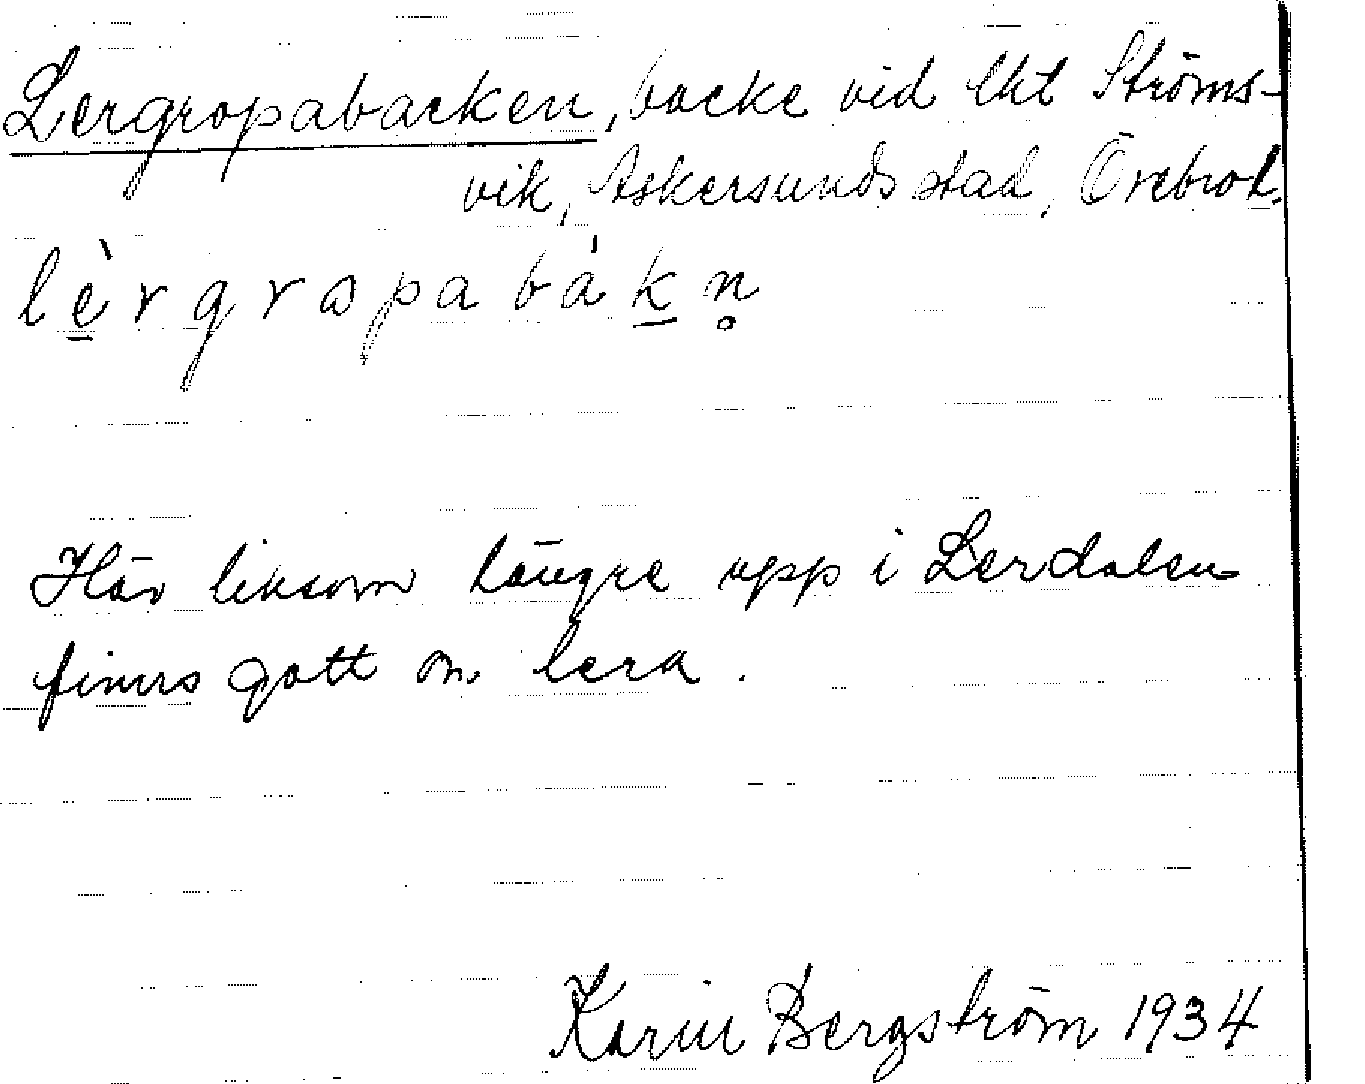 Lergropabacken, backe vid lht Ströms-
vik, Askersunds stad, Örebro l.
lèrgropabákn̥
Här liksom längre upp i Lerdalen
finns gott om lera.
Karin Bergström 1934